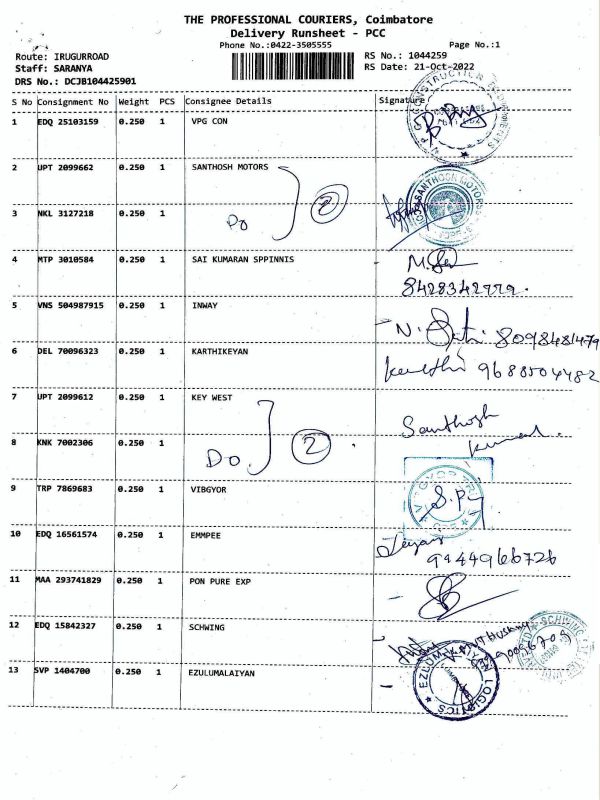 THE PROFESSIONAL COURIERS, Coimbatore
Delivery Runsheet - PCC
Phone No.:0422-3505555 Page No.:1
Route: IRUGURROAD RS No.: 1044259
Staff: SARANYA RS Date: 21-Oct-2022
DRS No.: DCJB104425901
S No Consignment No Weight PCS Consignee Details Signature
1 EDQ 25103159 0.250 1 VPG CON
2 UPT 2099662 0.250 1 SANTHOSH MOTORS
SANTHOSH MOTORS
Do 2
3 NKL 3127218 0.250 1
4 MTP 3010584 0.250 1 SAI KUMARAN SPPINNIS
5 VNS 504987915 0.250 1 INWAY
6 DEL 70096323 0.250 1 KARTHIKEYAN
9688504482
7 UPT 2099612 0.250 1 KEY WEST Santhosh
Kumar.
8 KNK 7002306 0.250 1 Do. 2
9 TRP 7869683 0.250 1 VIBGYOR S.P
10 EDQ 16561574 0.250 1 EMMPEE
9944966726
11 MAA 293741829 0.250 1 PON PURE EXP
12 EDQ 15842327 0.250 1 SCHWING
13 SVP 1404700 0.250 1 EZULUMALAIYAN
LOGISTICS